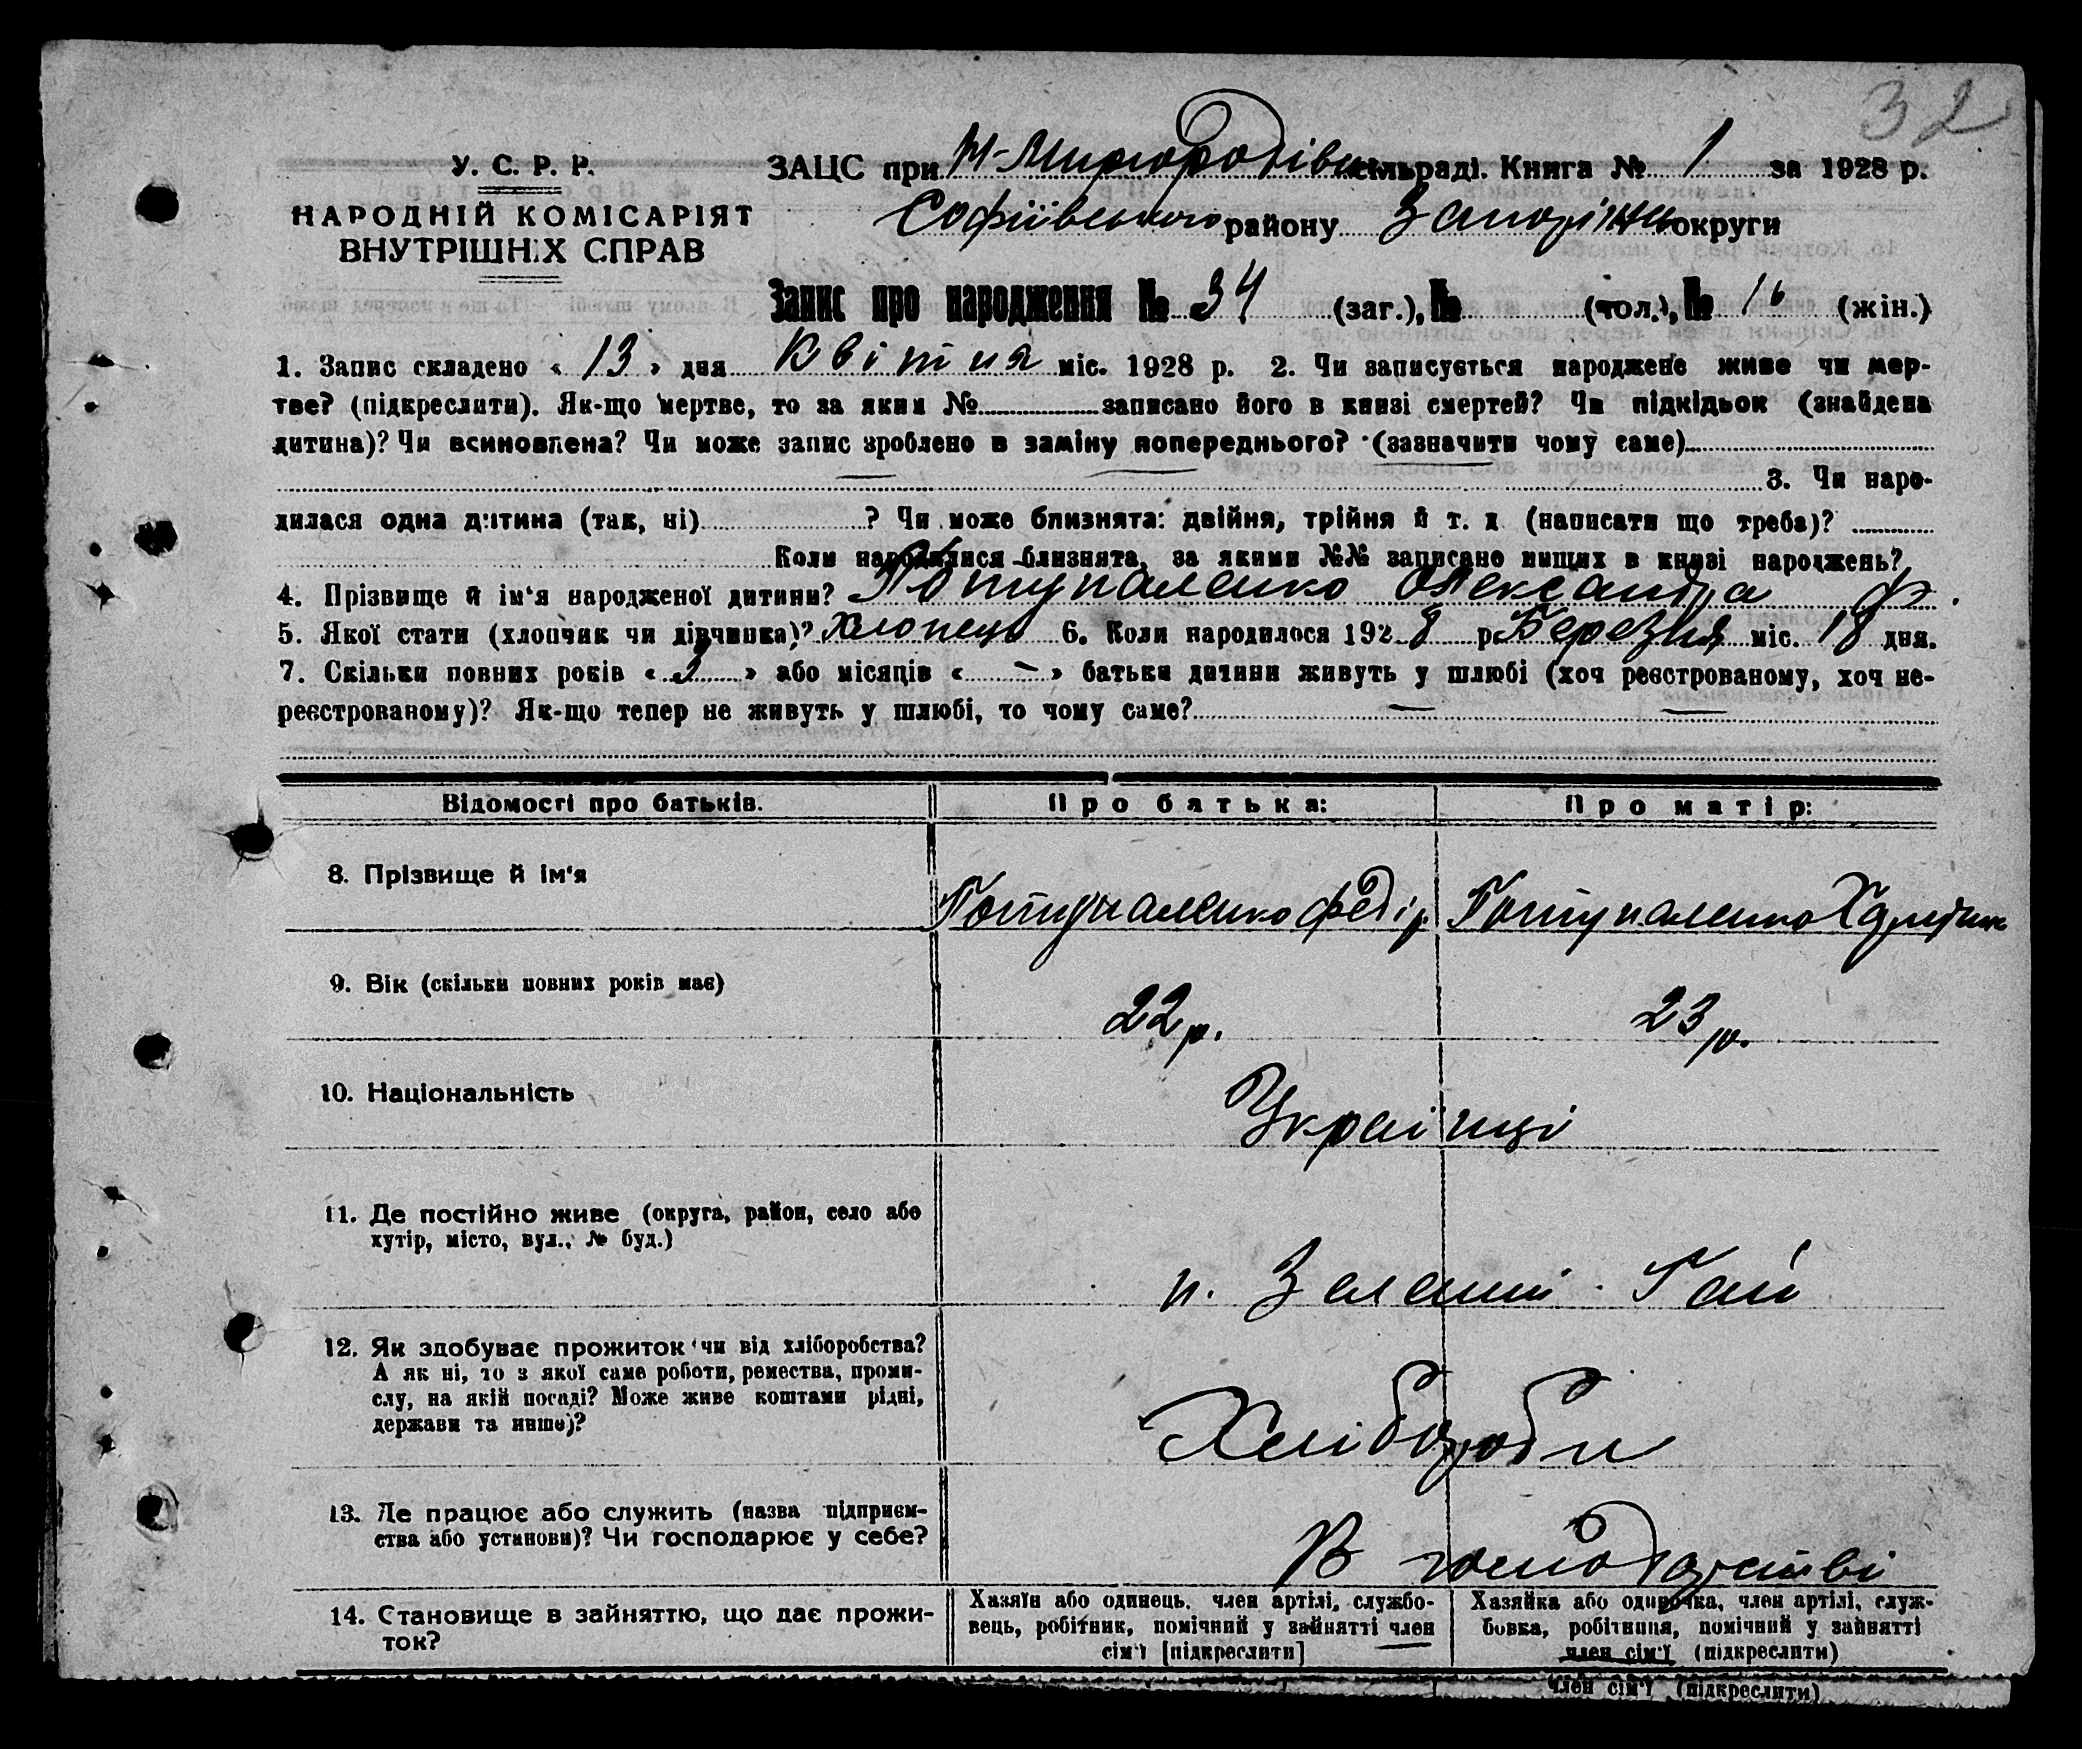 32
У. С. Р. Р.
НАРОДНІЙ КОМІСАРІЯТ
ВНУТРІШНІХ СПРАВ
ЗАЦС при сільраді. Книга № 1 за 1928 р.
Софіївського району Запоріжс округи
Запис про народження № 34 (заг.), № (чол.), № 16 (жін.)
1. Запис складено « 13 » дня Квітня міс. 1928 р. 2. Чи записується народжене живе чи мер-
тве? (підкреслити). Як-що мертве, то за яким № записано його в книзі смертей? Чи підкідьок (знайдена
дитина)? Чи всиновлена? Чи може запис зроблено в заміну попереднього? (зазначити чому саме)
3. Чи наро-
дилася одна дитина (так, ні) ? Чи може близнята: двійня, трійня й т. д (написати що треба)?
Коли народилися близнята, за якими №№ записано инших в книзі народжень?
4. Прізвище й ім'я народженої дитини? Потупаленко Олександра Ф.
5. Якої стати (хлопчик чи дівчинка)? Хлопець 6. Коли народилося 1928 р. Березня міс. 18 дня.
7. Скільки повних років « 2 » або місяців « – » батьки дитини живуть у шлюбі (хоч реєстрованому, хоч не-
реєстрованому)? Як-що тепер не живуть у шлюбі, то чому саме?
Відомості про батьків. Про батька: Про матір:
8. Прізвище й ім'я Потупаленко Федір Потупаленко
9. Вік (скільки повних років має) 22 р. 23 р.
10. Національність Українці
11. Де постійно живе (округа, район, село або
хутір, місто, вул., № буд.)
п. Зелений Гай
12. Як здобуває прожиток чи від хліборобства?
А як ні, то з якої саме роботи, ремества, проми-
слу, на якій посаді? Може живе коштами рідні,
держави та инше)?
Хлібороби
13. Де працює або служить (назва підприєм-
ства або установи)? Чи господарює у себе?
В господарстві
14. Становище в зайняттю, що дає прожи-
ток?
Хазяїн або одинець, член артілі, службо-
вець, робітник, помічний у зайнятті член
сім'ї [підкреслити]
Хазяйка або одиночка, член артілі, служ-
бовка, робітниця, помічний у зайнятті
член сім'ї (підкреслити)
член сім'ї (підкреслити)